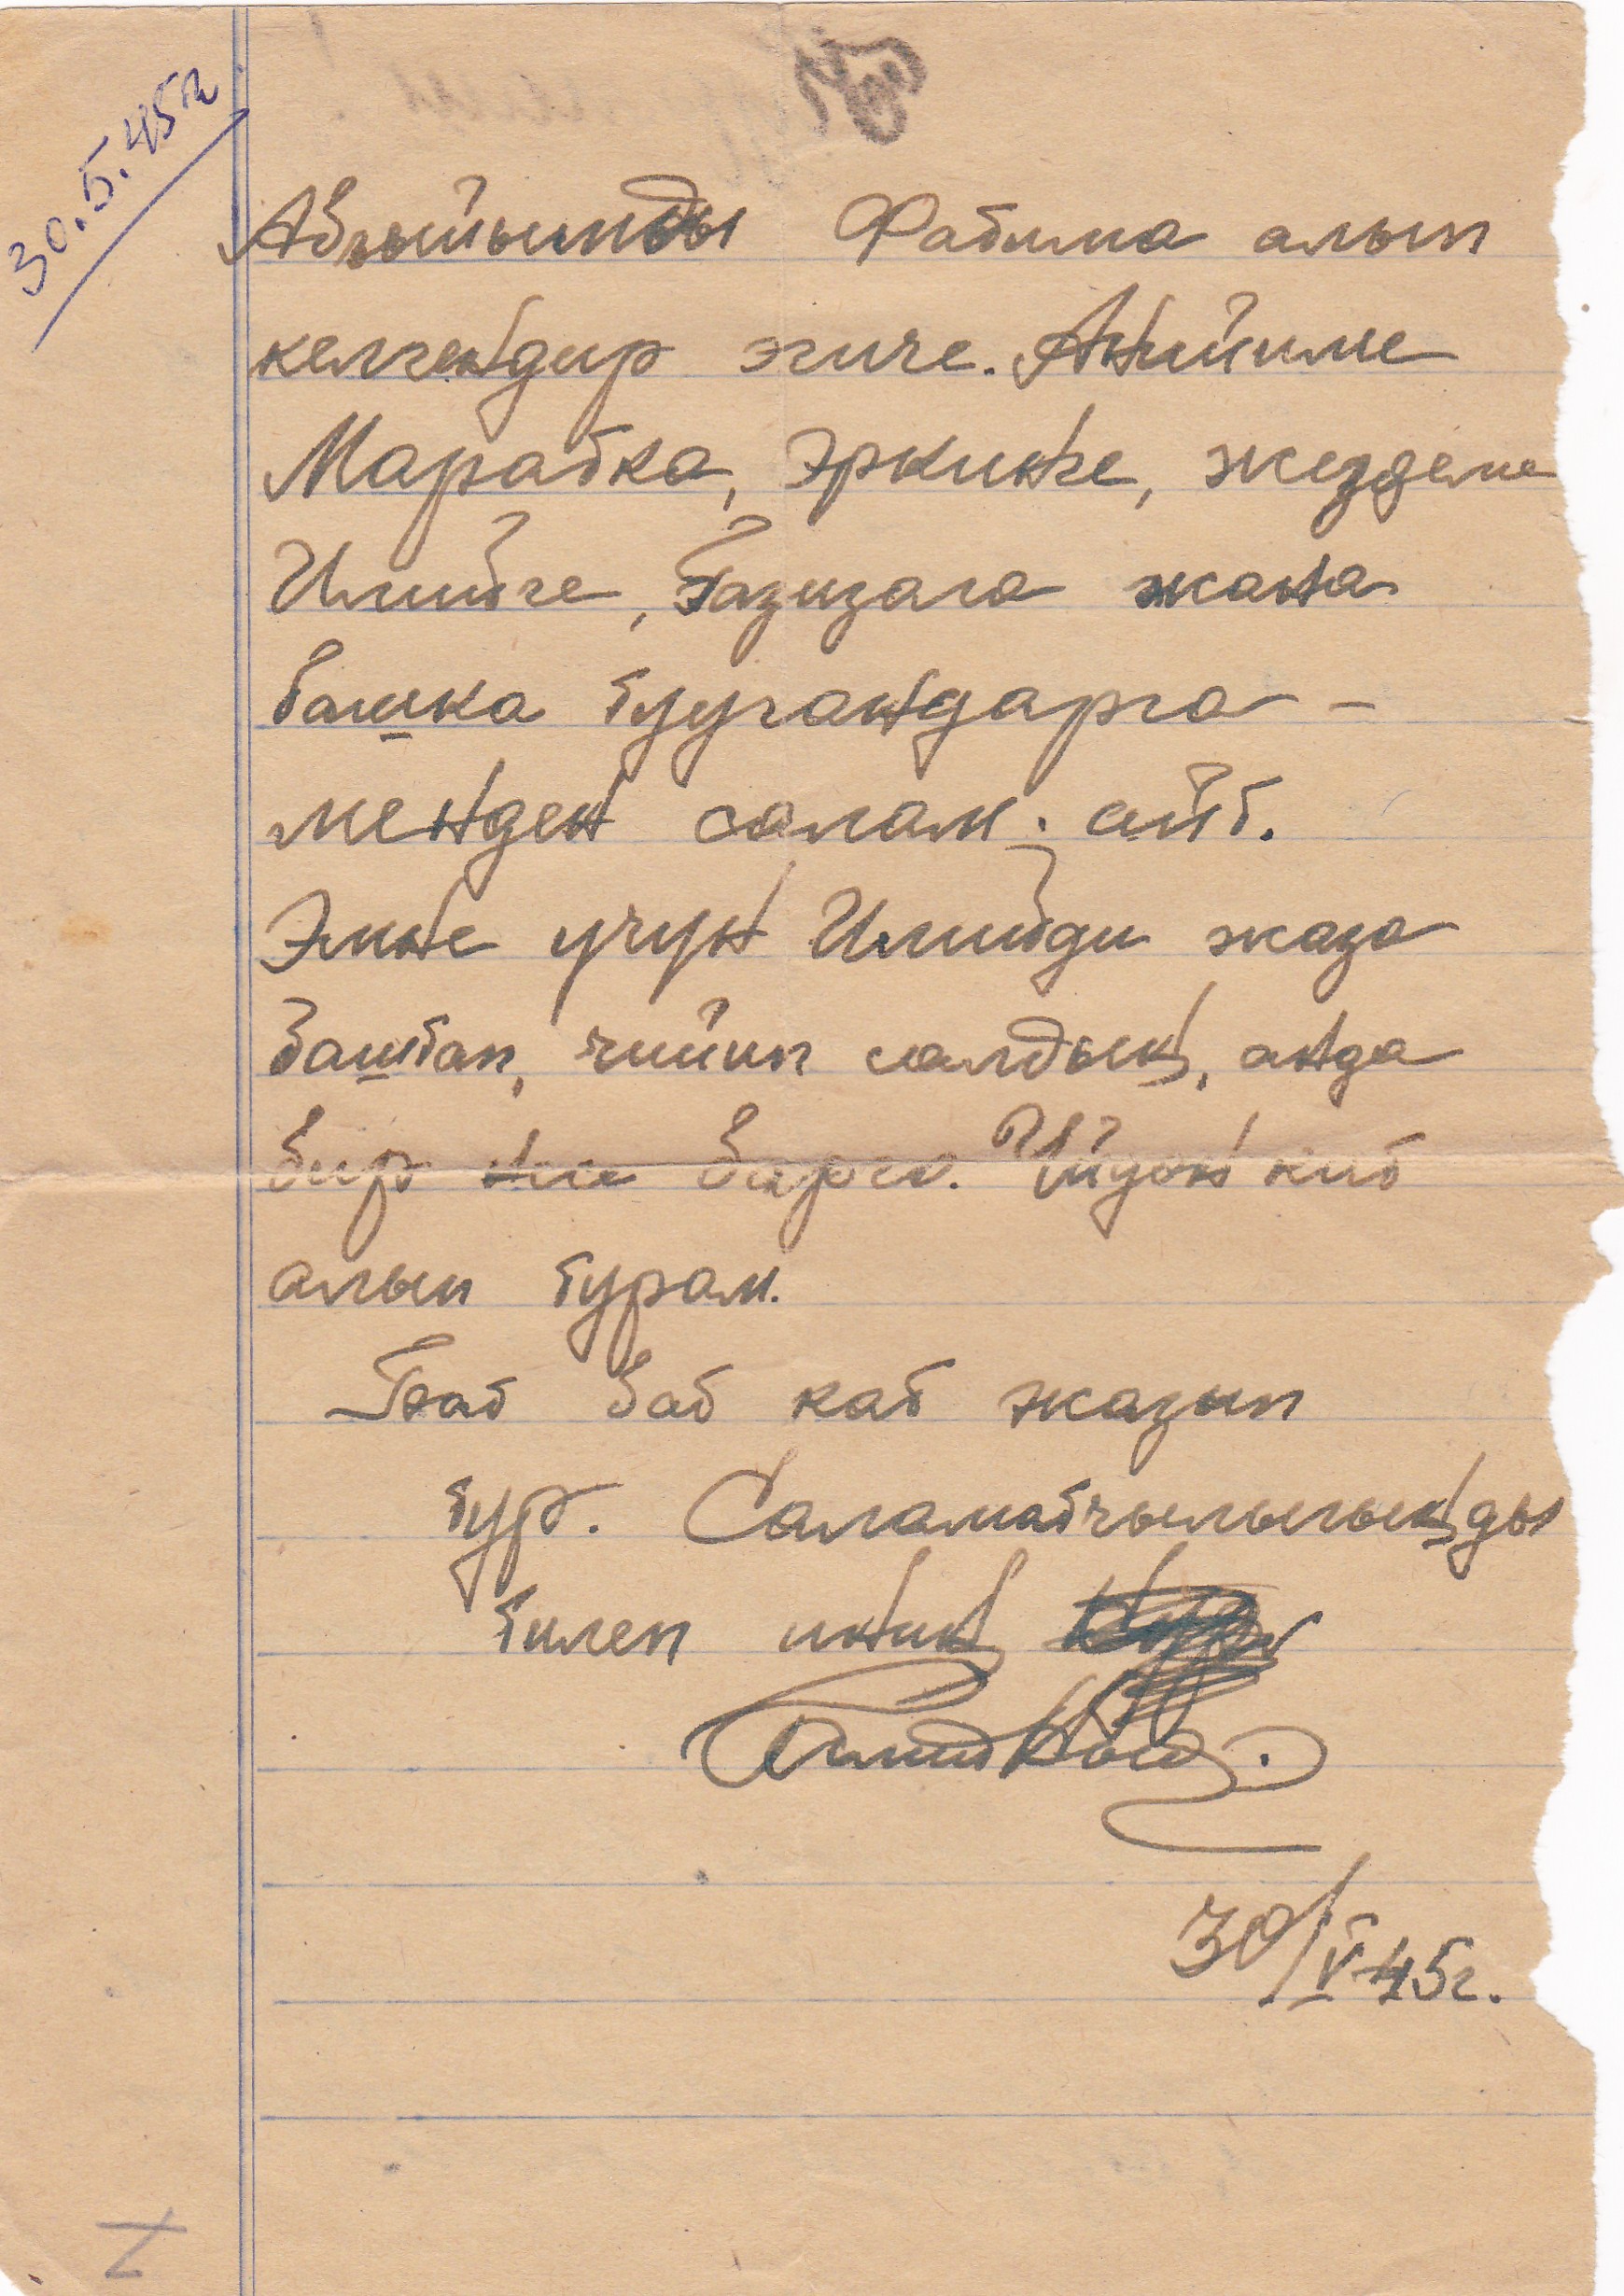 30.5.45г
Фатима алып
келгендир эжиче. Анййиме
Маратка, Эркинге, жездеме
Илийге, Газизага жана
башка туугандарга –
менден салам айт.
Эмне учун Илийди жаза
баштап, чийип салдың, анда
бир бары. кит
алып турам.
Бат бат кат жазып
тур. Саламатчылыгыңды
тилеп иниң
30/V-45г.